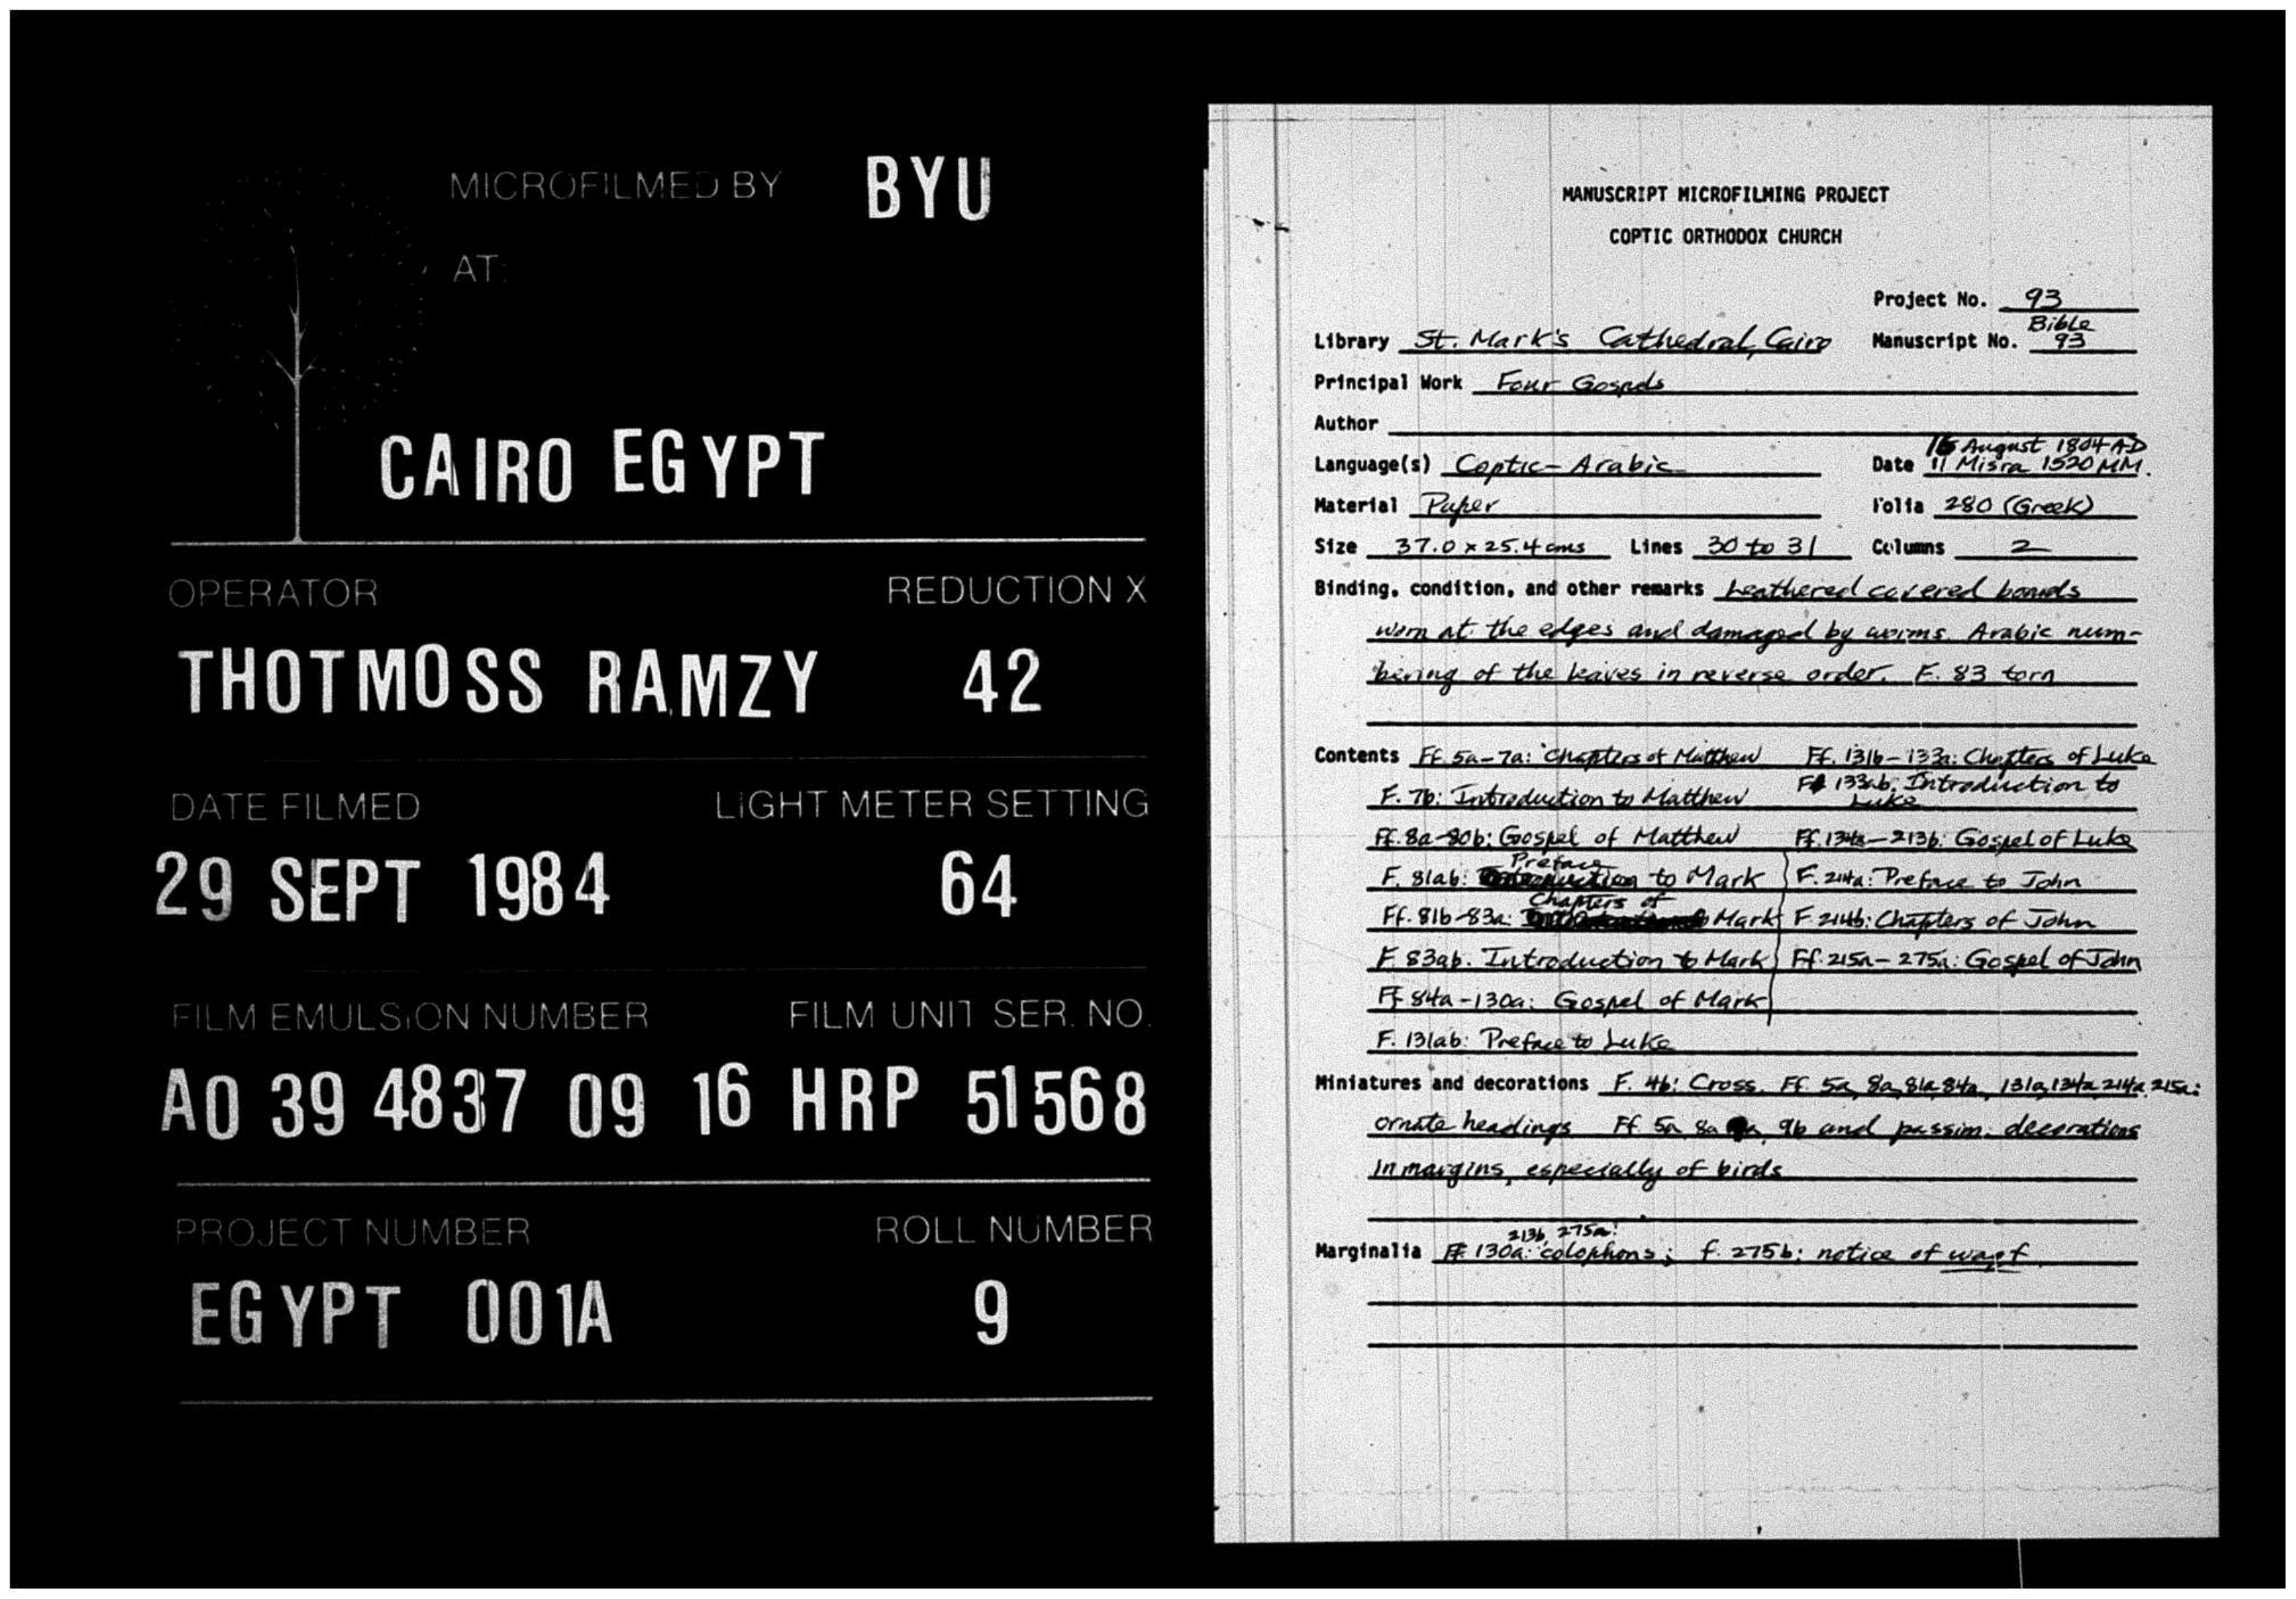 MICROFILMED BY BYU
AT:
CAIRO EGYPT
OPERATOR REDUCTION X
THOTMOSS RAMZY 42
DATE FILMED LIGHT METER SETTING
29 SEPT 1984 64
FILM EMULSION NUMBER FILM UNIT SER. NO.
A0 39 4837 09 16 HRP 51568
PROJECT NUMBER ROLL NUMBER
EGYPT 001A 9
MANUSCRIPT MICROFILMING PROJECT
COPTIC ORTHODOX CHURCH
Project No. 93
Library St. Mark's Cathedral, Cairo Manuscript No. Bible 93
Principal Work Four Gospels
Author
Language(s) Coptic-Arabic Date 16 August 1804 AD 11 Misra 1520 MM.
Material Paper Folia 280 (Greek)
Size 37.0 x 25.4 cms Lines 30 to 31 Columns 2
Binding, condition, and other remarks Leathered covered boards
worn at the edges and damaged by worms. Arabic num-
bering of the leaves in reverse order. F. 83 torn
Contents Ff. 5a-7a: Chapters of Matthew Ff. 131b-133a: Chapters of Luke
F. 7b: Introduction to Matthew F 133ab: Introduction to Luke
Ff. 8a-80b: Gospel of Matthew Ff. 134a-213b: Gospel of Luke
F. 81ab: Preface to Mark F. 214a: Preface to John
Ff. 81b-83a: Chapters of Mark F. 214b: Chapters of John
F. 83ab. Introduction to Mark Ff. 215a-275a: Gospel of John
Ff 84a-130a: Gospel of Mark
F. 131ab: Preface to Luke
Miniatures and decorations F. 4b: Cross. Ff. 5a, 8a, 81a, 84a, 131a, 134a, 214a, 215a:
ornate headings Ff. 5a, 8a, 9b and passim: decorations
in margins, especially of birds
Marginalia Ff. 130a, 213b, 275a: colophons; f. 275b: notice of waqf